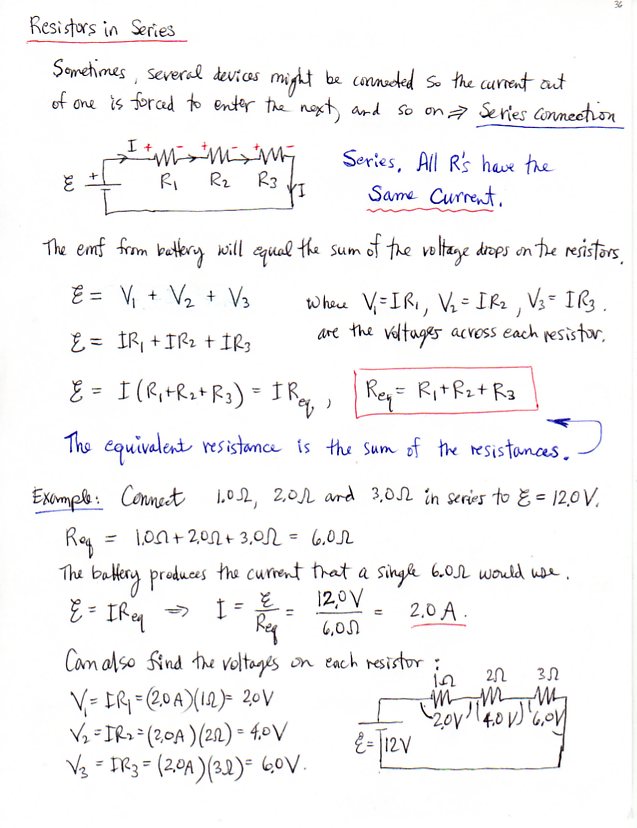 36
Resistors in Series
Sometimes, several devices might be connected so the current out
of one is forced to enter the next, and so on ⇒ Series Connection
I + - + - + -
ℰ +
R1 R2 R3
I
Series. All R's have the
Same Current.
The emf from battery will equal the sum of the voltage drops on the resistors.
ℰ = V1 + V2 + V3
where V1=IR1, V2=IR2, V3=IR3.
ℰ = IR1 + IR2 + IR3
are the voltages across each resistor.
ℰ = I(R1+R2+R3) = IReq, Req = R1+R2+R3
The equivalent resistance is the sum of the resistances.
Example: Connect 1.0Ω, 2.0Ω and 3.0Ω in series to ℰ = 12.0V.
Req = 1.0Ω + 2.0Ω + 3.0Ω = 6.0Ω
The battery produces the current that a single 6.0Ω would use.
ℰ = IReq ⇒ I = ℰ/Req = 12.0V/6.0Ω = 2.0 A.
Can also find the voltages on each resistor:
V1 = IR1 = (2.0A)(1Ω) = 2.0V
V2 = IR2 = (2.0A)(2Ω) = 4.0V
V3 = IR3 = (2.0A)(3Ω) = 6.0V.
1Ω 2Ω 3Ω
2.0V 4.0V 6.0V
ℰ= 12V